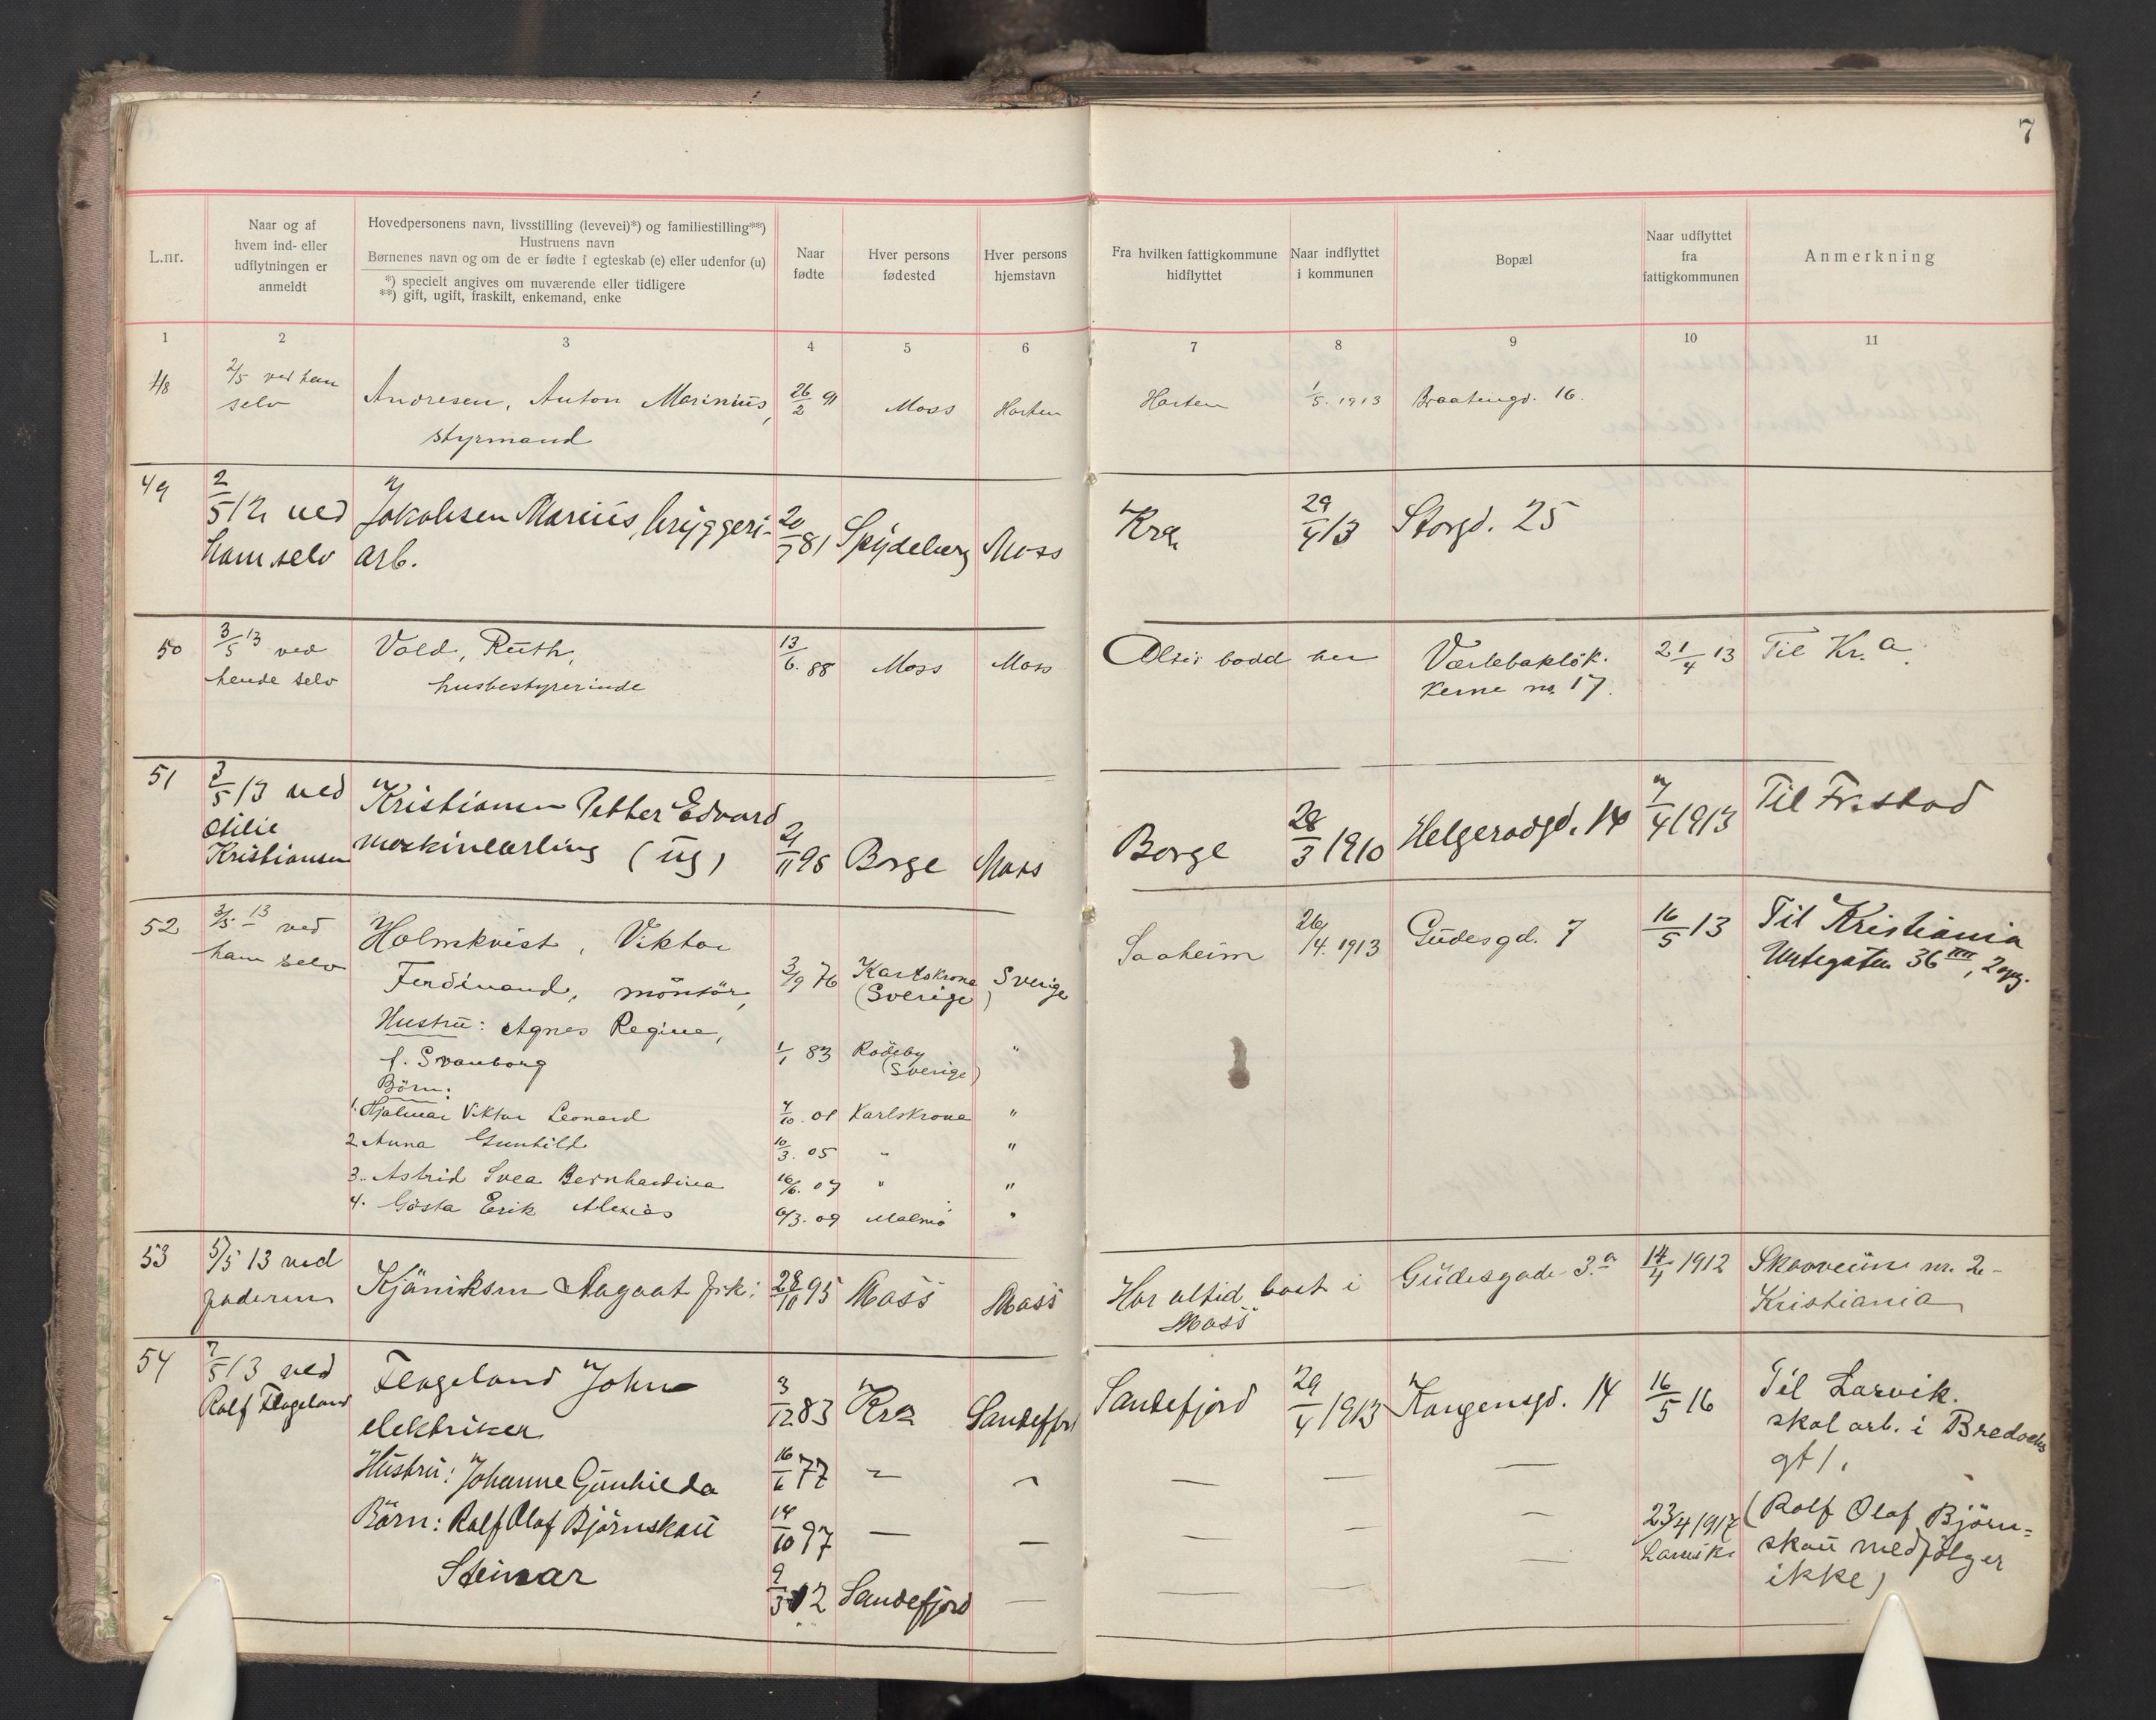 7
L.nr.
Naar og af
hvem ind- eller
udflytningen er
anmeldt
Hovedpersonens navn, livsstilling (levevei)*) og familiestilling**)
Hustruens navn
Børnenes navn og om de er fødte i egteskab (e) eller udenfor (u)
*) specielt angives om nuværende eller tidligere
**) gift, ugift, fraskilt, enkemand, enke
Naar
fødte
Hver persons
fødested
Hver persons
hjemstavn
Fra hvilken fattigkommune
hidflyttet
Naar indflyttet
i kommunen
Bopæl
Naar udflyttet
fra
fattigkommunen
Anmerkning
1 2 3 4 5 6 7 8 9 10 11
48 2/5 ved ham Andresen, Anton Marinius, 26/2 91 Moss Horten Horten 1/5. 1913 Braatengd. 16.
selv styrmand
49 2/5 13 ved Jakobsen Marius, bryggeri- 20/7 81 Spydeberg Moss Kra 29/4 13 Storgd. 25
ham selv arb.
50 3/5 13 ved Vold, Ruth, 13/6. 88 Moss Moss Altid bodd her Værlebakløk- 21/4 13 Til Kr.a
hende selv husbestyrerinde kerne no. 17.
51 3/5 13 ved Kristiansen Petter Edvard
Otilie maskinlærling (ug) 21/11 95 Borge Moss Borge 28/3 1910 Helgerødgd. 14 7/4 1913 Til Fr.stad
Kristiansen
52 3/5 13 ved Holmkvist, Viktor Saaheim 26/4. 1913 Gudesgd. 7 16/5 13 Til Kristiania
ham selv Ferdinand, montør, 3/9 76 Karlskrona Sverige Urtegaten 36 IIII, 2 opg.
(Sverige)
Hustru: Agnes Regine,
f. Svanborg 1/1 83 Rödeby "
(Sverige)
Børn:
1. Hjalmar Viktor Leonard 4/10. 01 Karlskrona "
2. Anna Gunhild 10/3. 05 " "
3. Astrid Svea Bernhardina 16/6. 07 " "
4. Gösta Erik Alexius 6/3. 09 Malmö "
53 5/5 13 ved Kjäniksen Aagaat frk: 28/10 95 Moss Moss Har altid boet i Gudesgade 3.a 14/4 1912 Skovveiene nr. 2-
faderen Moss Kristiania
54 7/5 13 ved Flageland John 3/12 83 Kra Sandefjord Sandefjord 29/4 1913 Kongensgd. 14 16/5 16 Til Larvik.
Rolf Flageland elektriker skal arb. i Bredochs
gt 1.
Hustru: Johanne Gunhilda 16/6 77 — — — — —
Børn: Rolf Olaf Bjørnskau 14/10 97 — — — — — 23/4 1917 (Rolf Olaf Bjørn=
Larvik skau medfølger
Steinar 9/3 12 Sandefjord — — — — ikke)